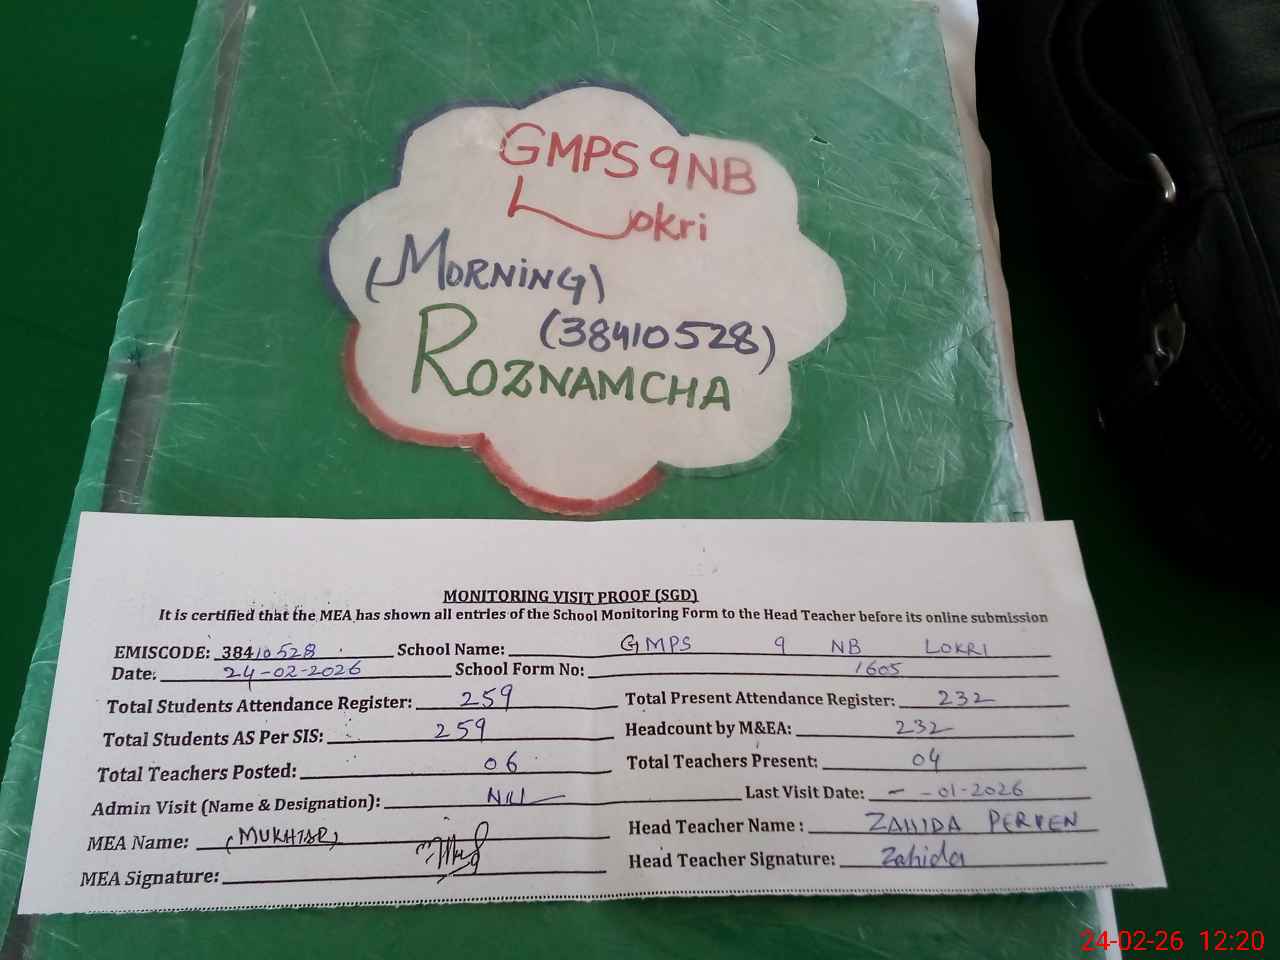 GMPS 9NB
Lokri
(MORNiNG)
(38410528)
ROZNAMCHA
MONITORING VISIT PROOF (SGD)
It is certified that the MEA has shown all entries of the School Monitoring Form to the Head Teacher before its online submission
EMISCODE: 38410528 School Name: GMPS 9 NB LOKRI
Date: 24-02-2026 School Form No: 1605
Total Students Attendance Register: 259 Total Present Attendance Register: 232
Total Students AS Per SIS: 259 Headcount by M&EA: 232
Total Teachers Posted: 06 Total Teachers Present: 04
Admin Visit (Name & Designation): Nil Last Visit Date: - -01-2026
MEA Name: (MUKHTAR) Head Teacher Name: ZAHIDA PERVEN
MEA Signature: Head Teacher Signature: Zahida
24-02-26 12:20